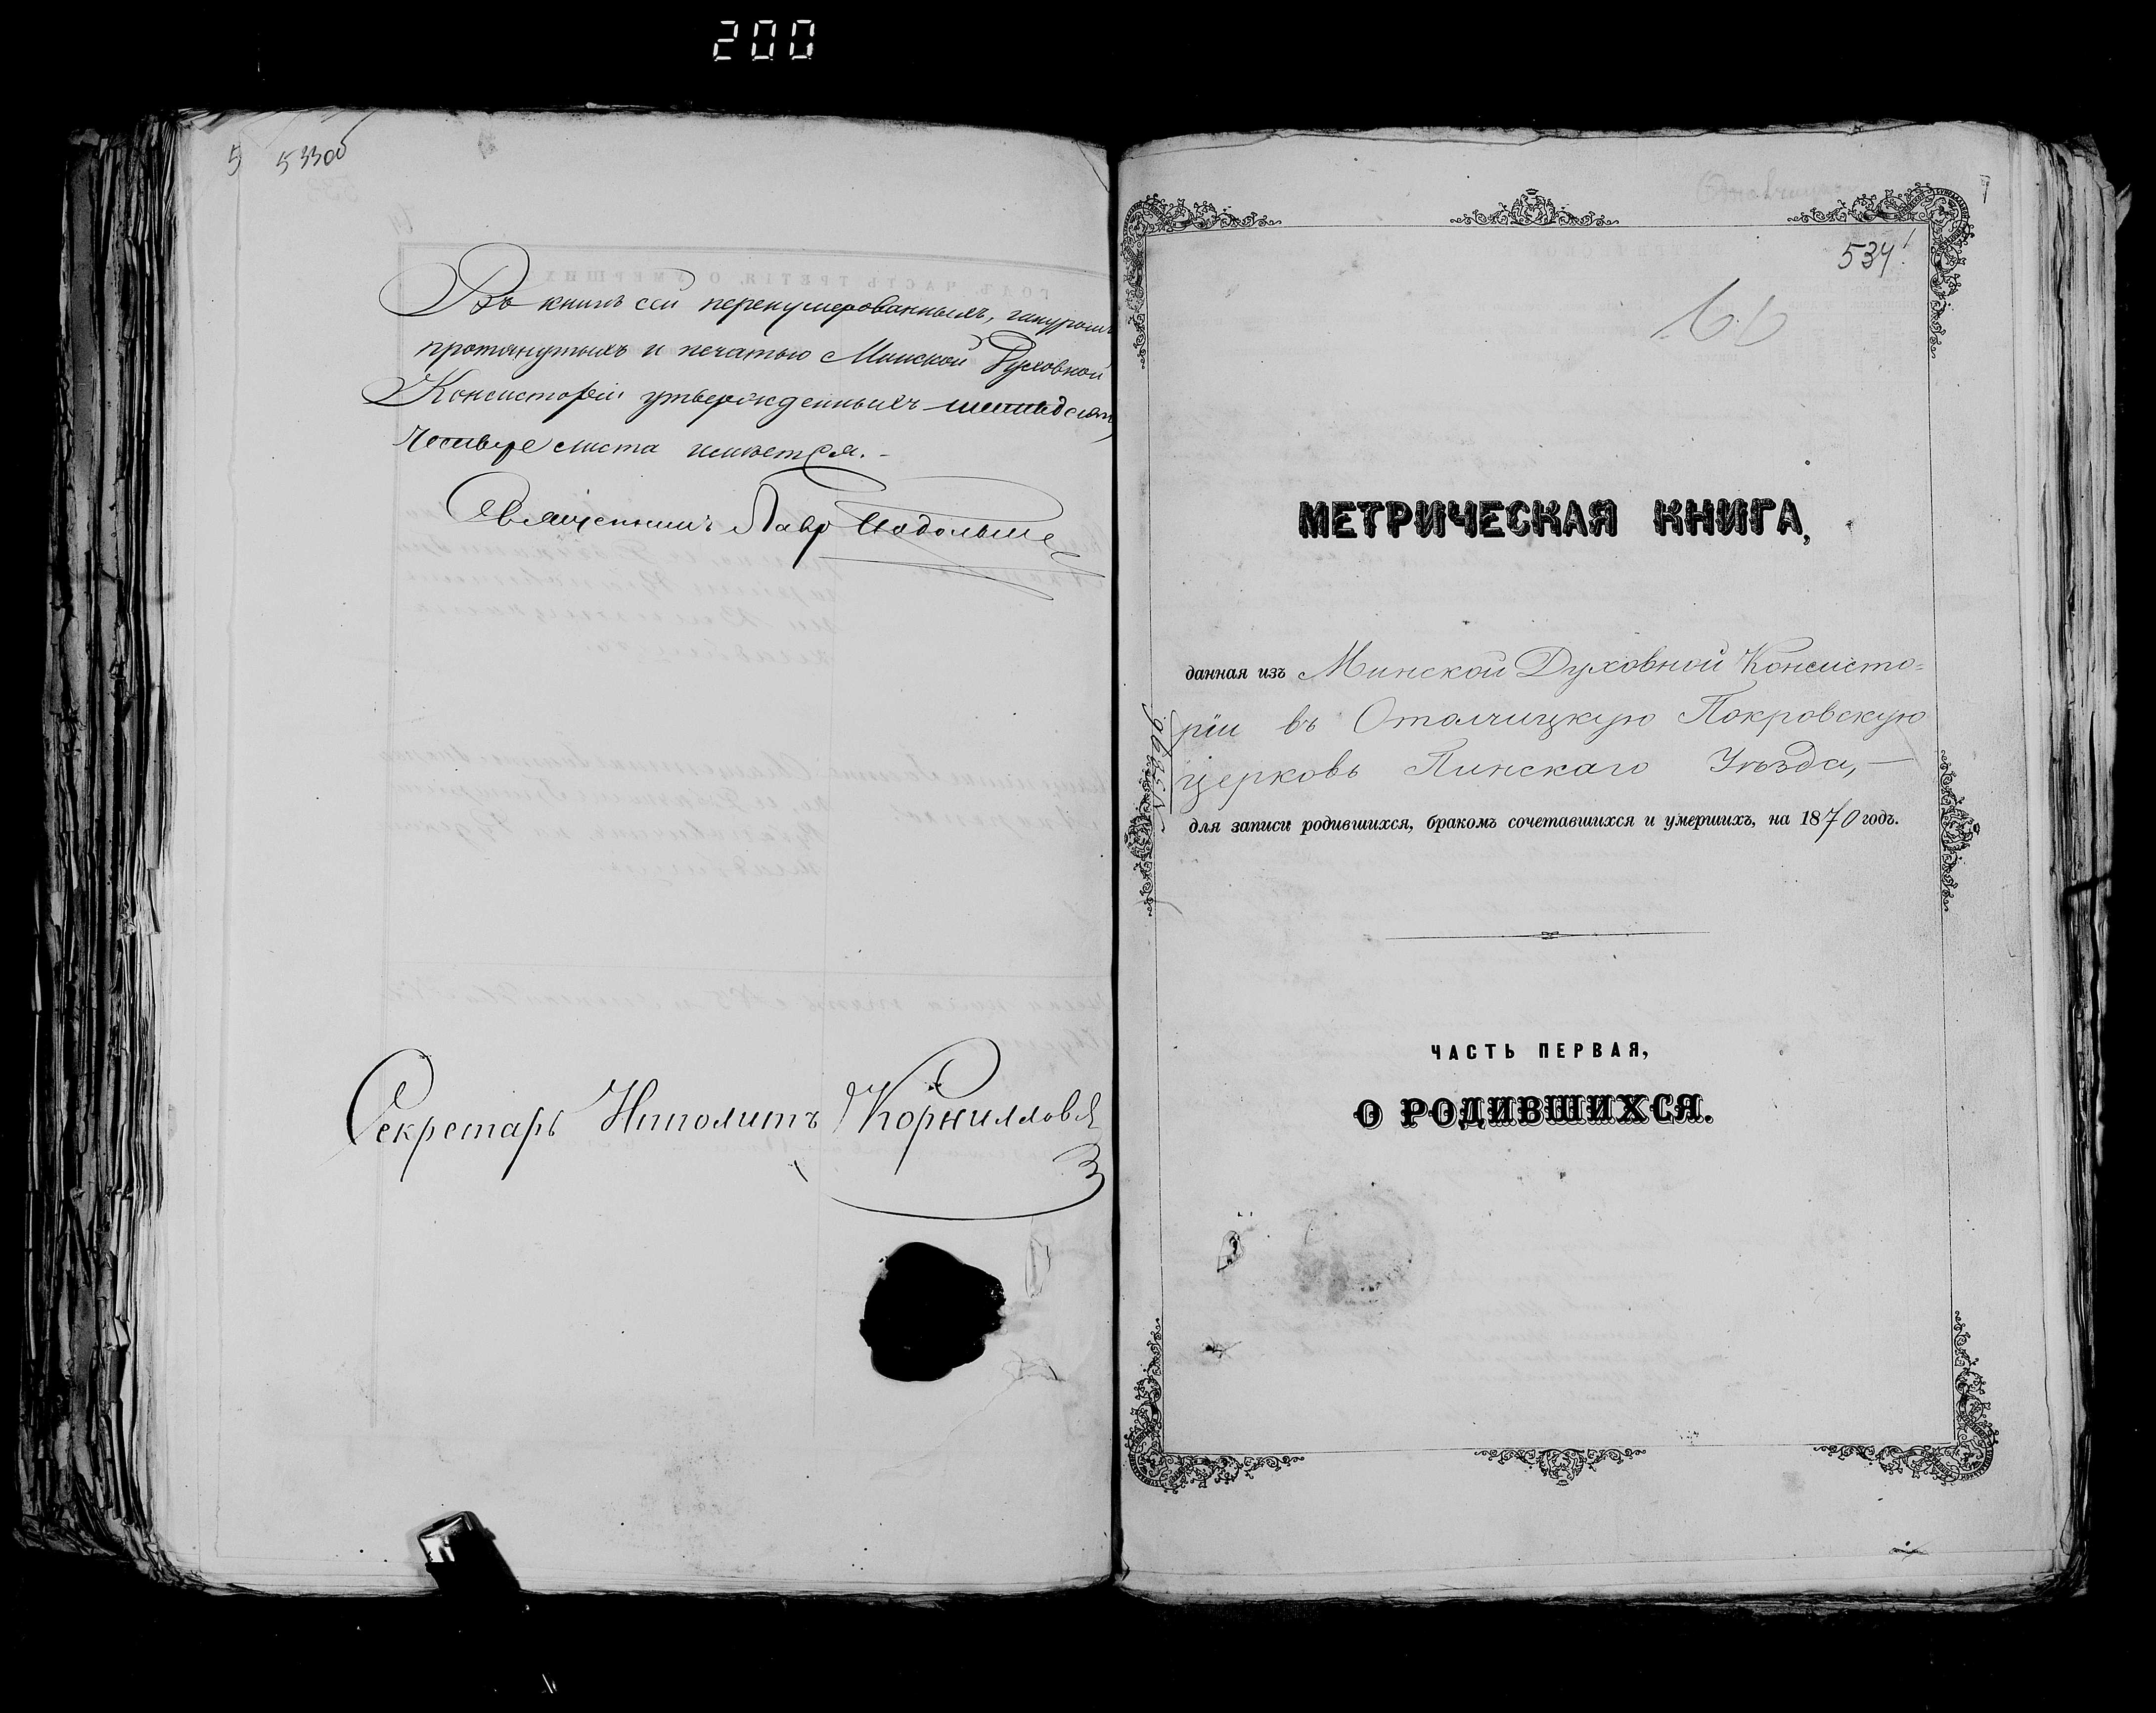 200
533об
Въ книгѣ сей перенумерованныхъ, шнуромъ
протянутыхъ и печатью Минской Духовной
Консисторіи утвержденныхъ шестьдесятъ
четыре листа имѣется.-
Священникъ Лавр
Секретарь Иполитъ Корниллов
534
1
МЕТРИЧЕСКАЯ КНИГА,
данная изъ Минской Духовной Консисто-
ріи въ Отолчицкую Покровскую
церковь Пинскаго Уѣзда, —
для записи родившихся, бракомъ сочетавшихся и умершихъ, на 1870 годъ.
ЧАСТЬ ПЕРВАЯ,
О РОДИВШИХСЯ.